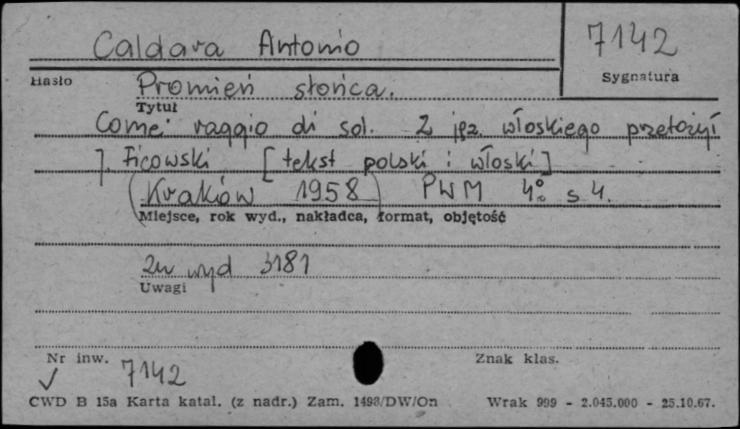 Caldara Antonio
7142
Hasło
Sygnatura
Promień słońca.
Tytuł
Come raggio di sol. Z jęz. włoskiego przełożył
J. Ficowski [tekst polski i włoski]
(Kraków 1958) PWM 4° s 4.
Miejsce, rok wyd., nakładca, format, objętość
wyd 3181
Uwagi
Nr inw. 7142
Znak klas.
CWD B 15a Karta katal. (z nadr.) Zam. 1498/DW/On
Wrak 999 - 2.045.000 - 25.10.67.